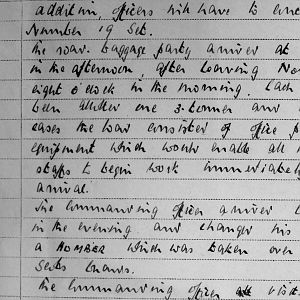 addition, officers will have to
Number 19 Set.
The rear baggage party arrived at
in the afternoon, after leaving
eight o'clock in the morning. Each
been allotted one 3-tonner and
cases the load consisted of office
equipment which would enable all
staffs to begin work immediately
arrival.
The Commanding Officer arrived
in the evening and changed his
a HUMBER which was taken over
Sects
The Commanding Officer